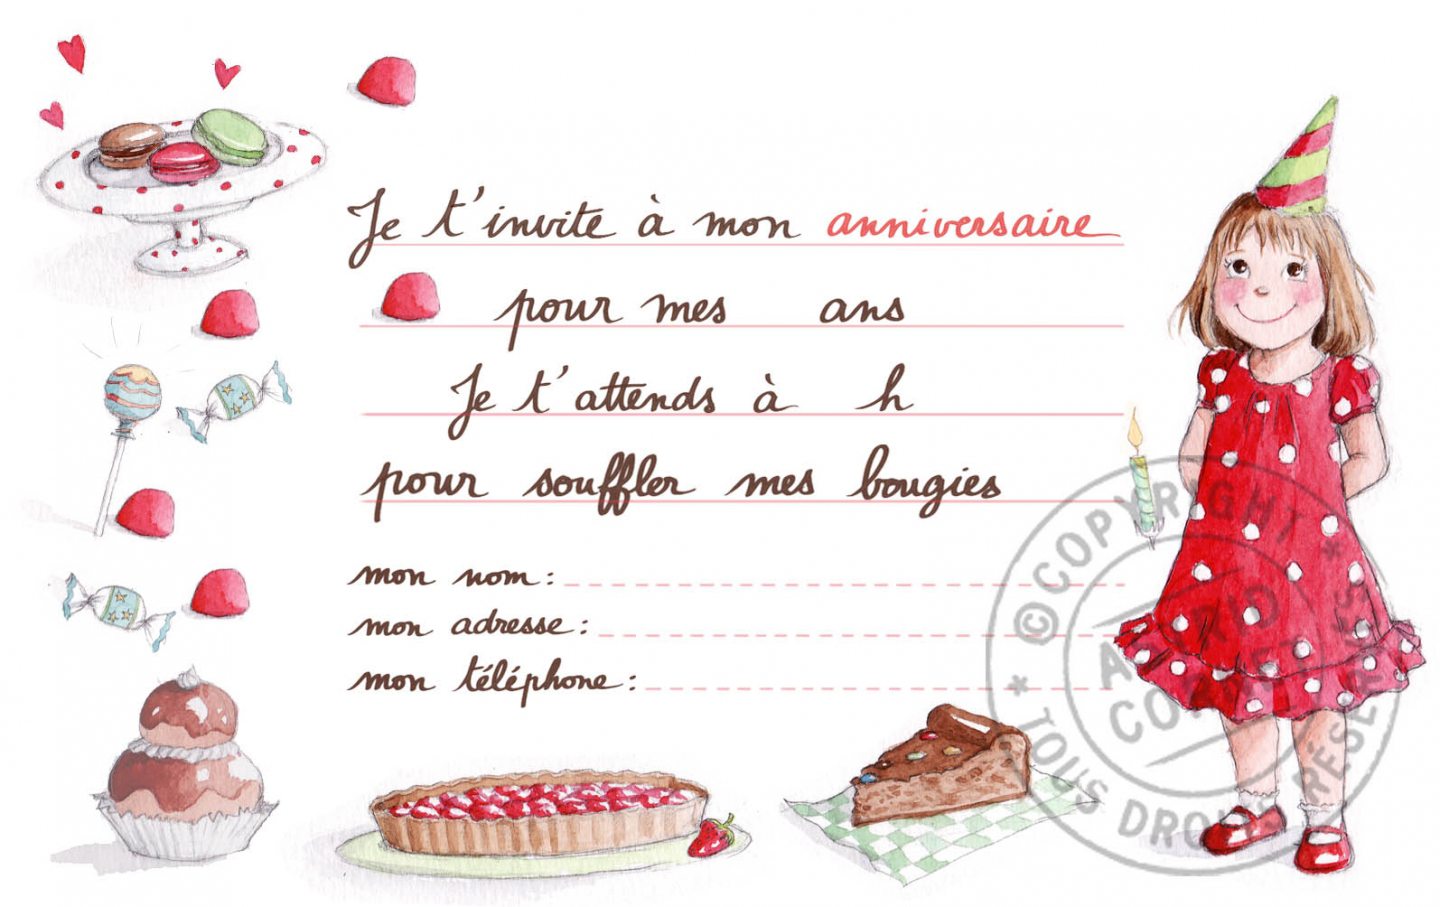 Je t'invite à mon anniversaire
pour mes ans
Je t'attends à h
pour souffler mes bougies
mon nom :
mon adresse :
mon téléphone :
© COPYRIGHT *
* TOUS DROITS RÉSERVÉS